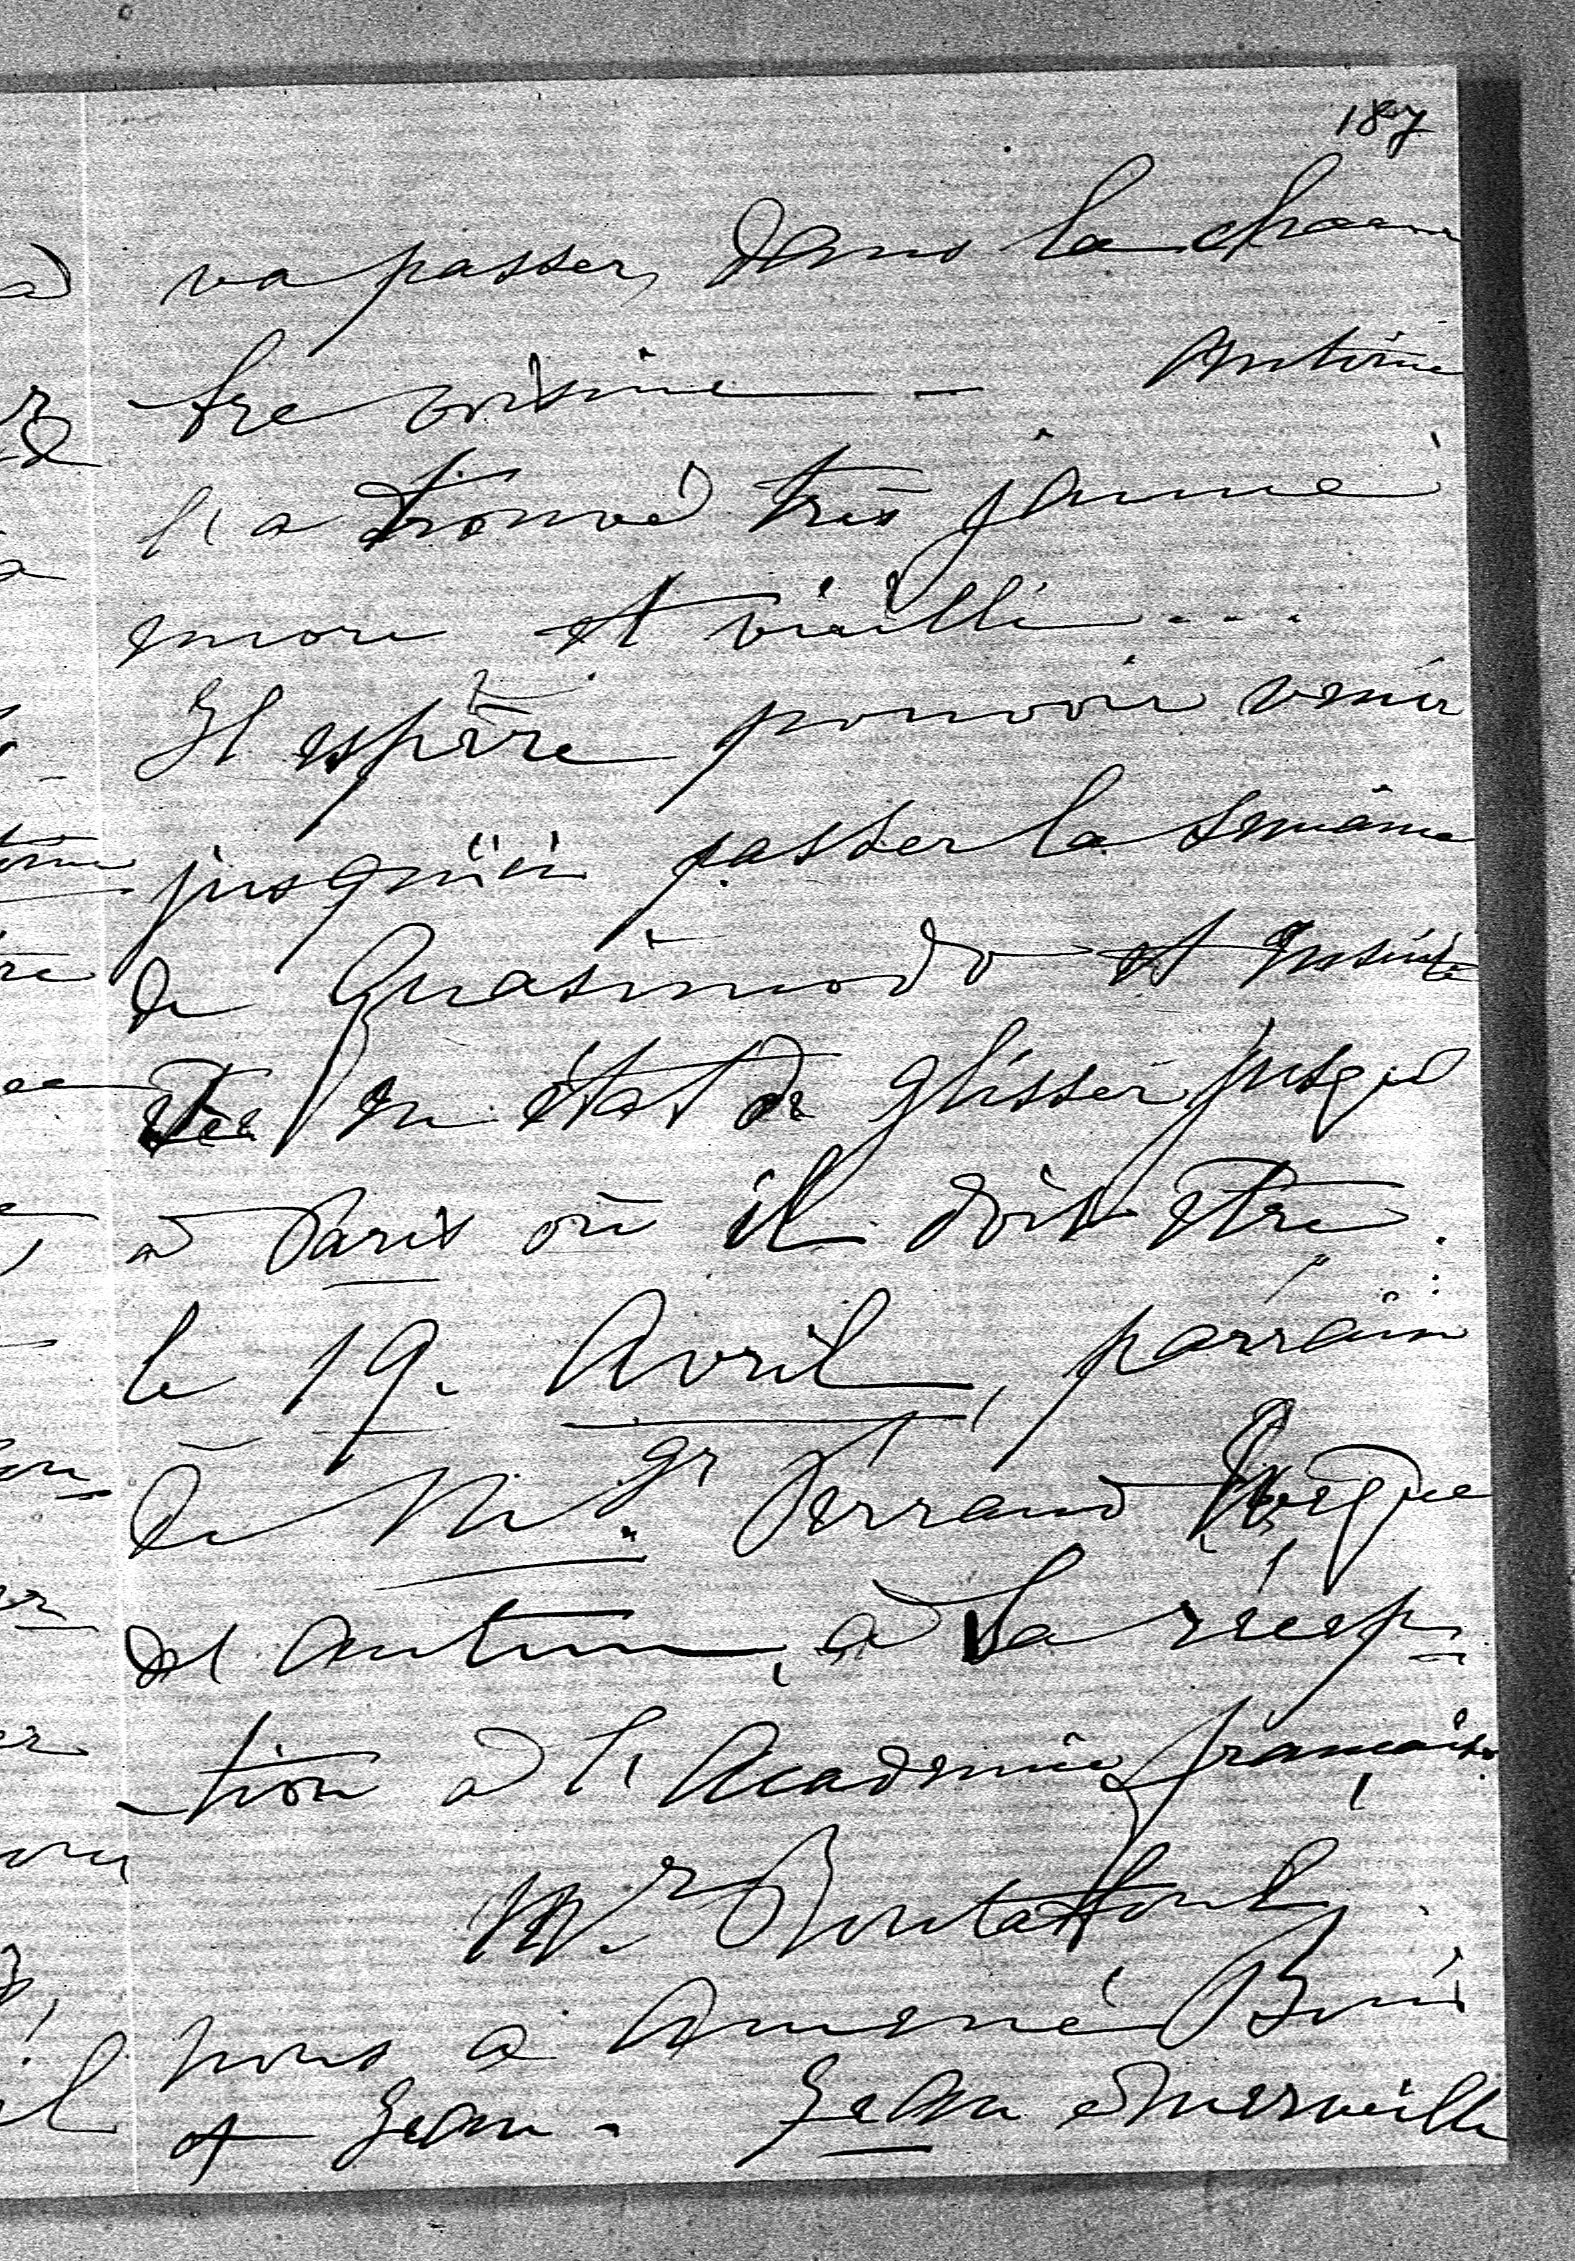 187
va passer, dans la cham
bre voisine – Antoine
l'a trouvé très jaune
encore et vieilli...
Il espère pouvoir venir
jusqu'ici passer la semaine
de Quasimodo et ensuite
être en état de glisser jusqu'
à Paris où il doit être
le 19 Avril, parrain
de Mgr Perraud Évêque
d'Autun, à la récep-
tion à l'Académie française
Mr
nous a amené Bois
et Jean. Jean émerveille